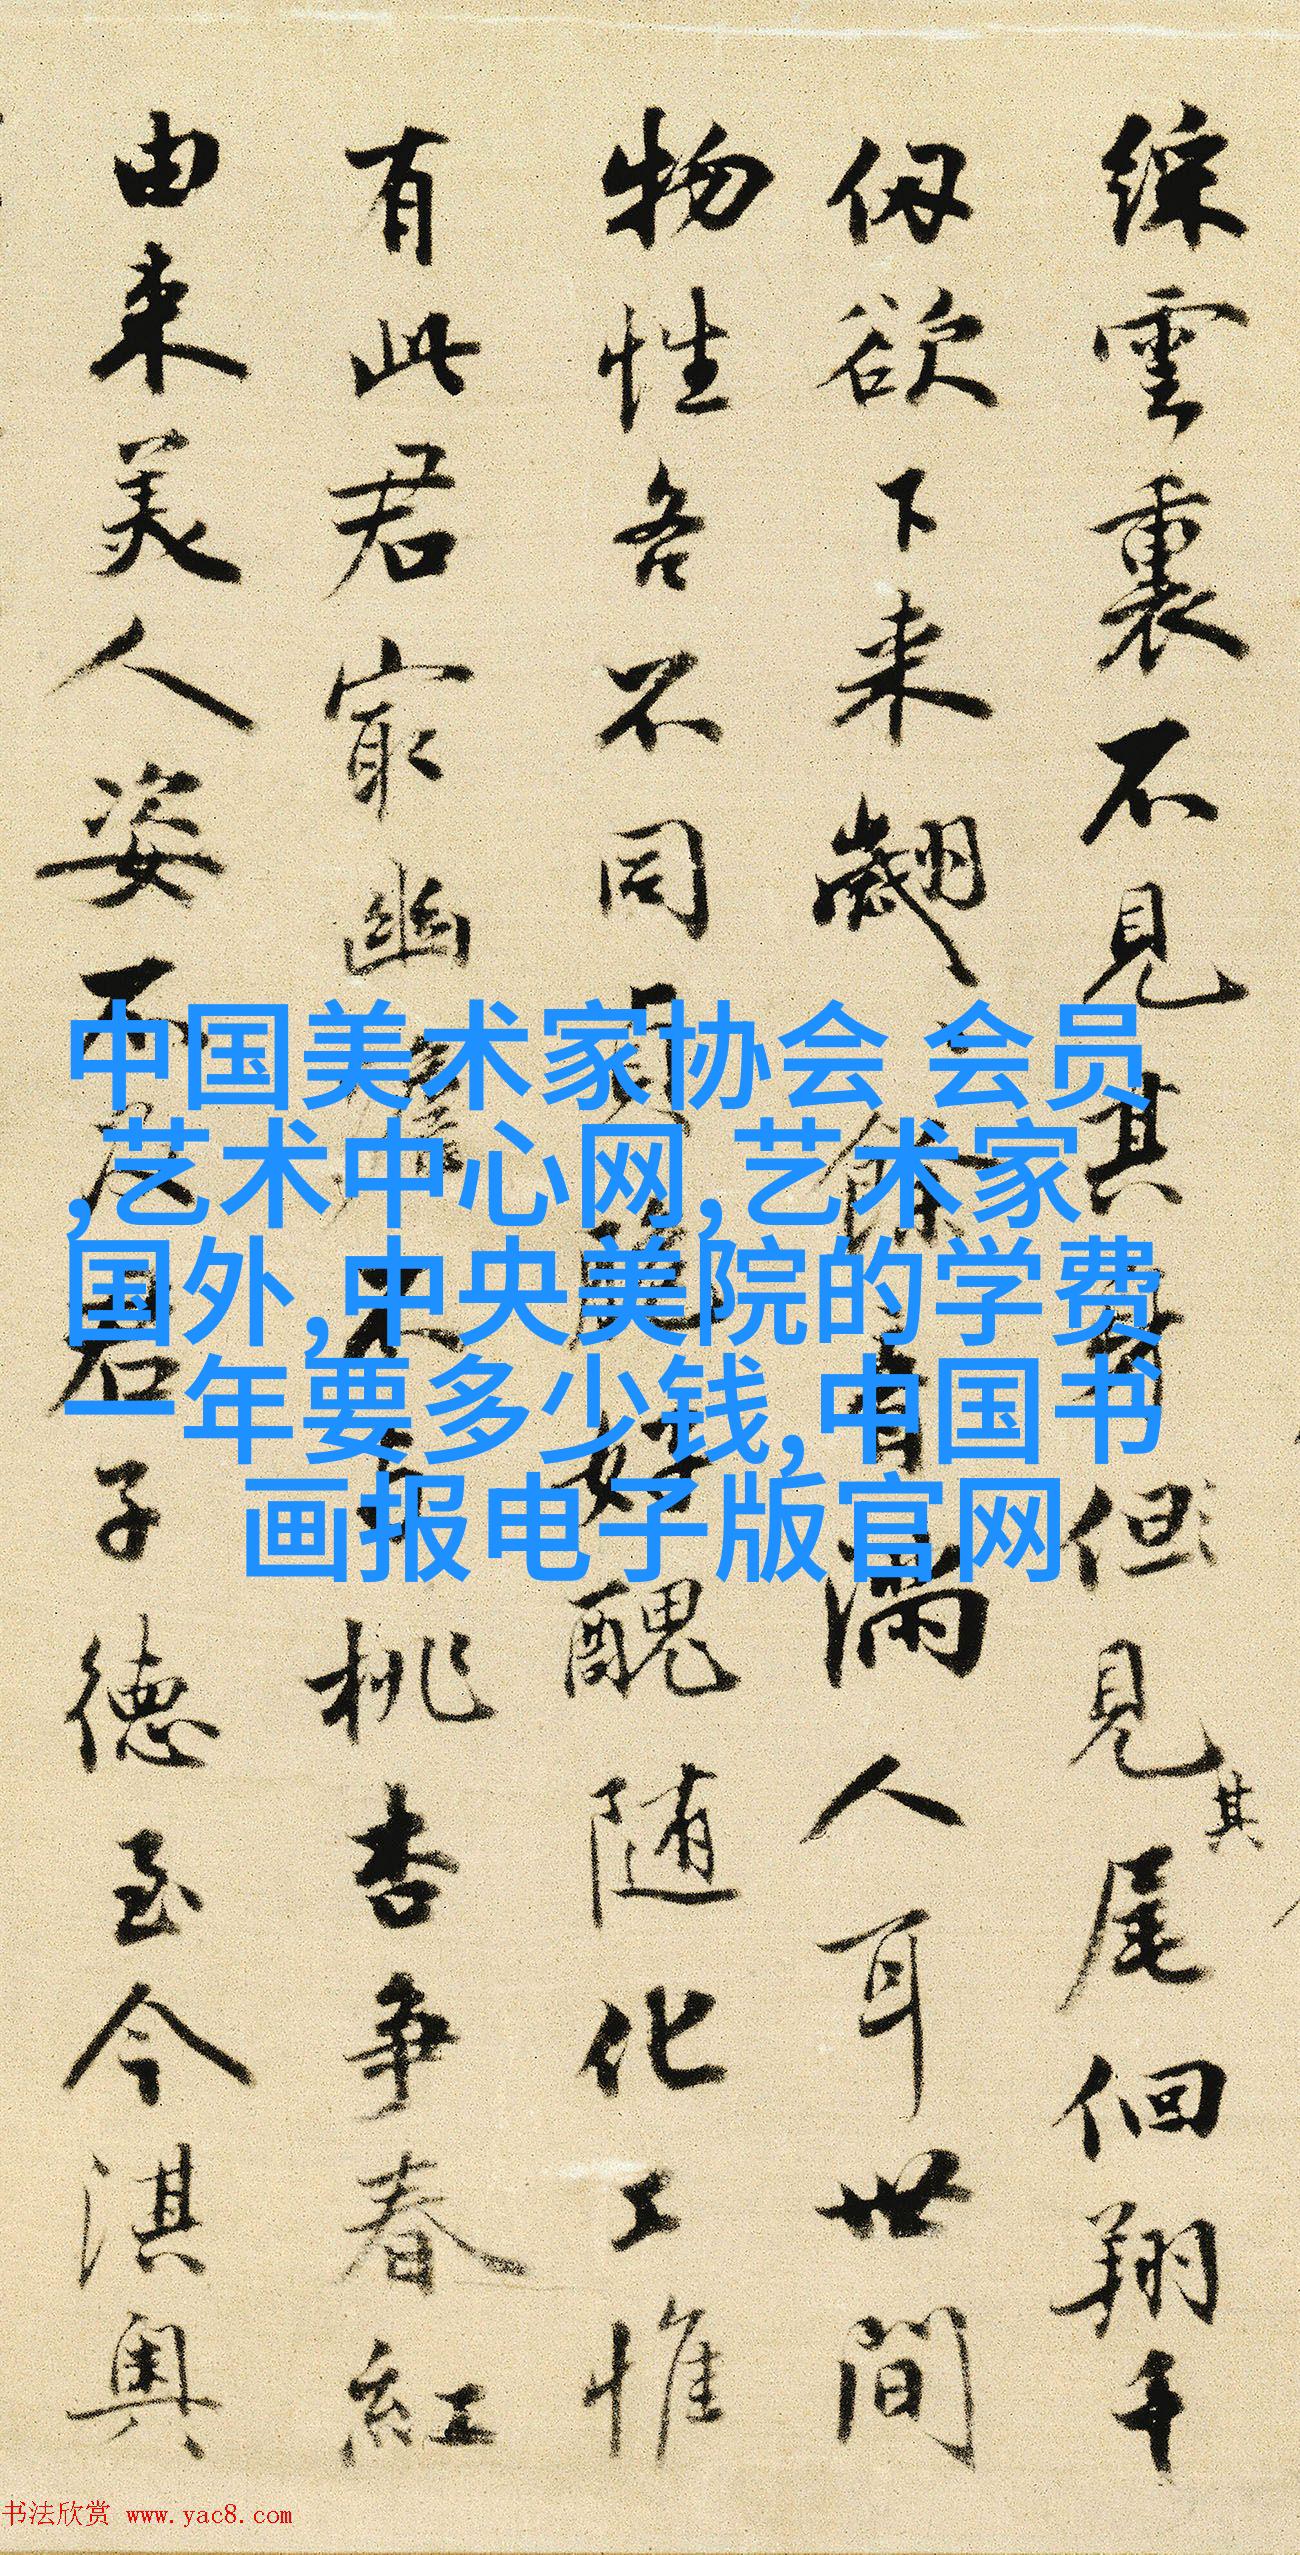 綵雲裏不見其但見其尾佪翔千
仞欲下来翽餘音滿人耳世間
物性各不同好醜随化工惟
有此君㝡幽不桃杏争春紅
由来美人姿不及君子德至今淇奥
中国美术家协会 会员
,艺术中心网,艺术家
国外,中央美院的学费
一年要多少钱,中国书
画报电子版官网
书法欣赏 www.yac8.com